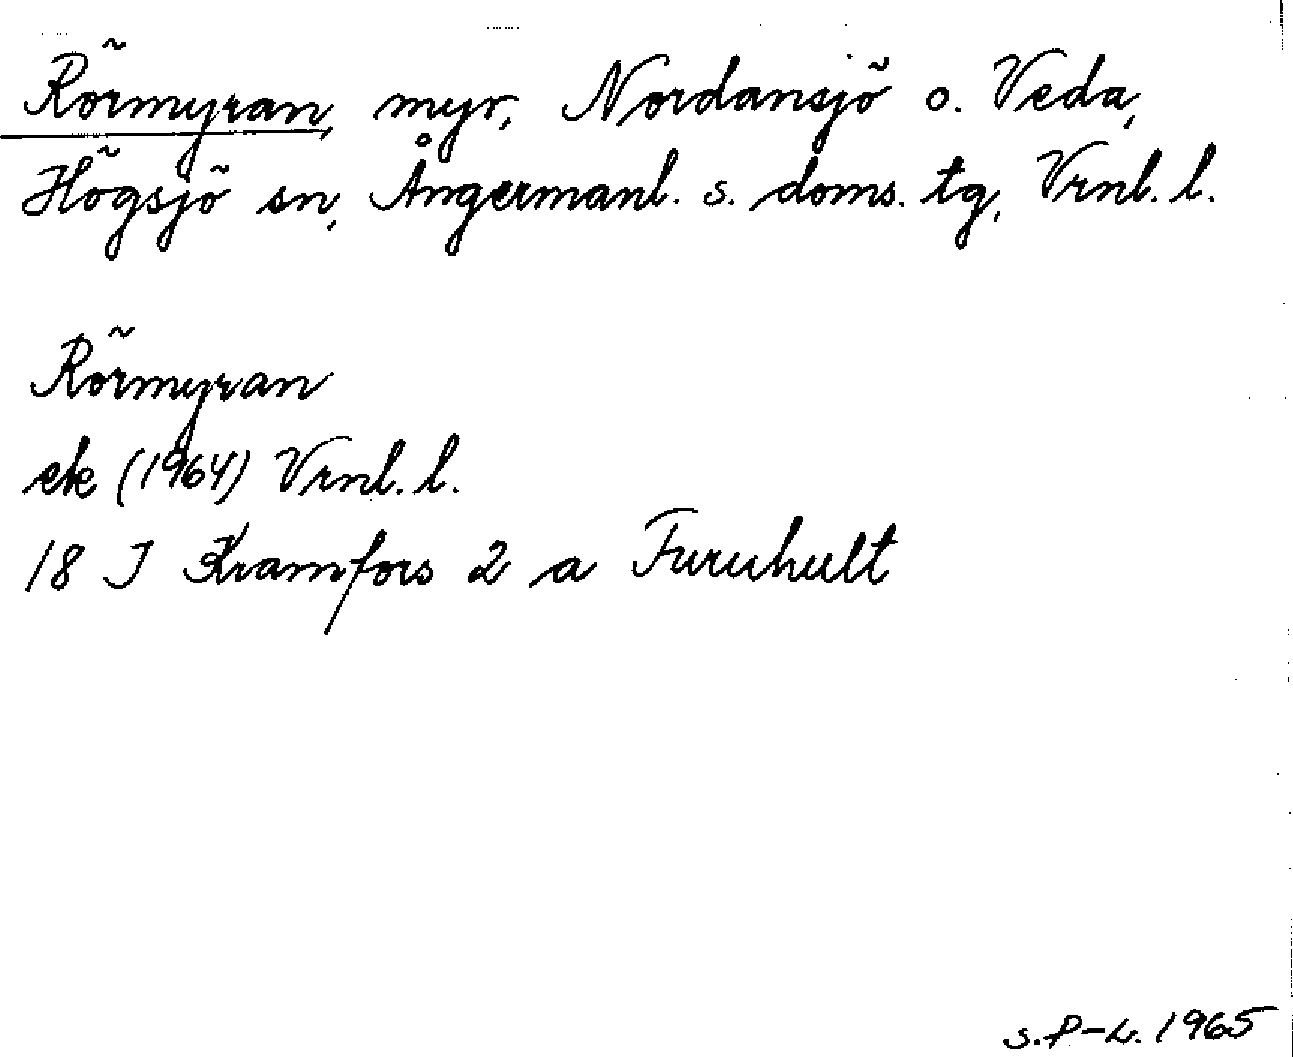 Rörmyran, myr, Nordansjö o. Veda,
Högsjö sn, Ångermanl. s. doms. tg, Vrnl. l.
Rörmyran
ek (1964) Vrnl. l.
18 I Kramfors 2 a Furuhult
s. P-L. 1965